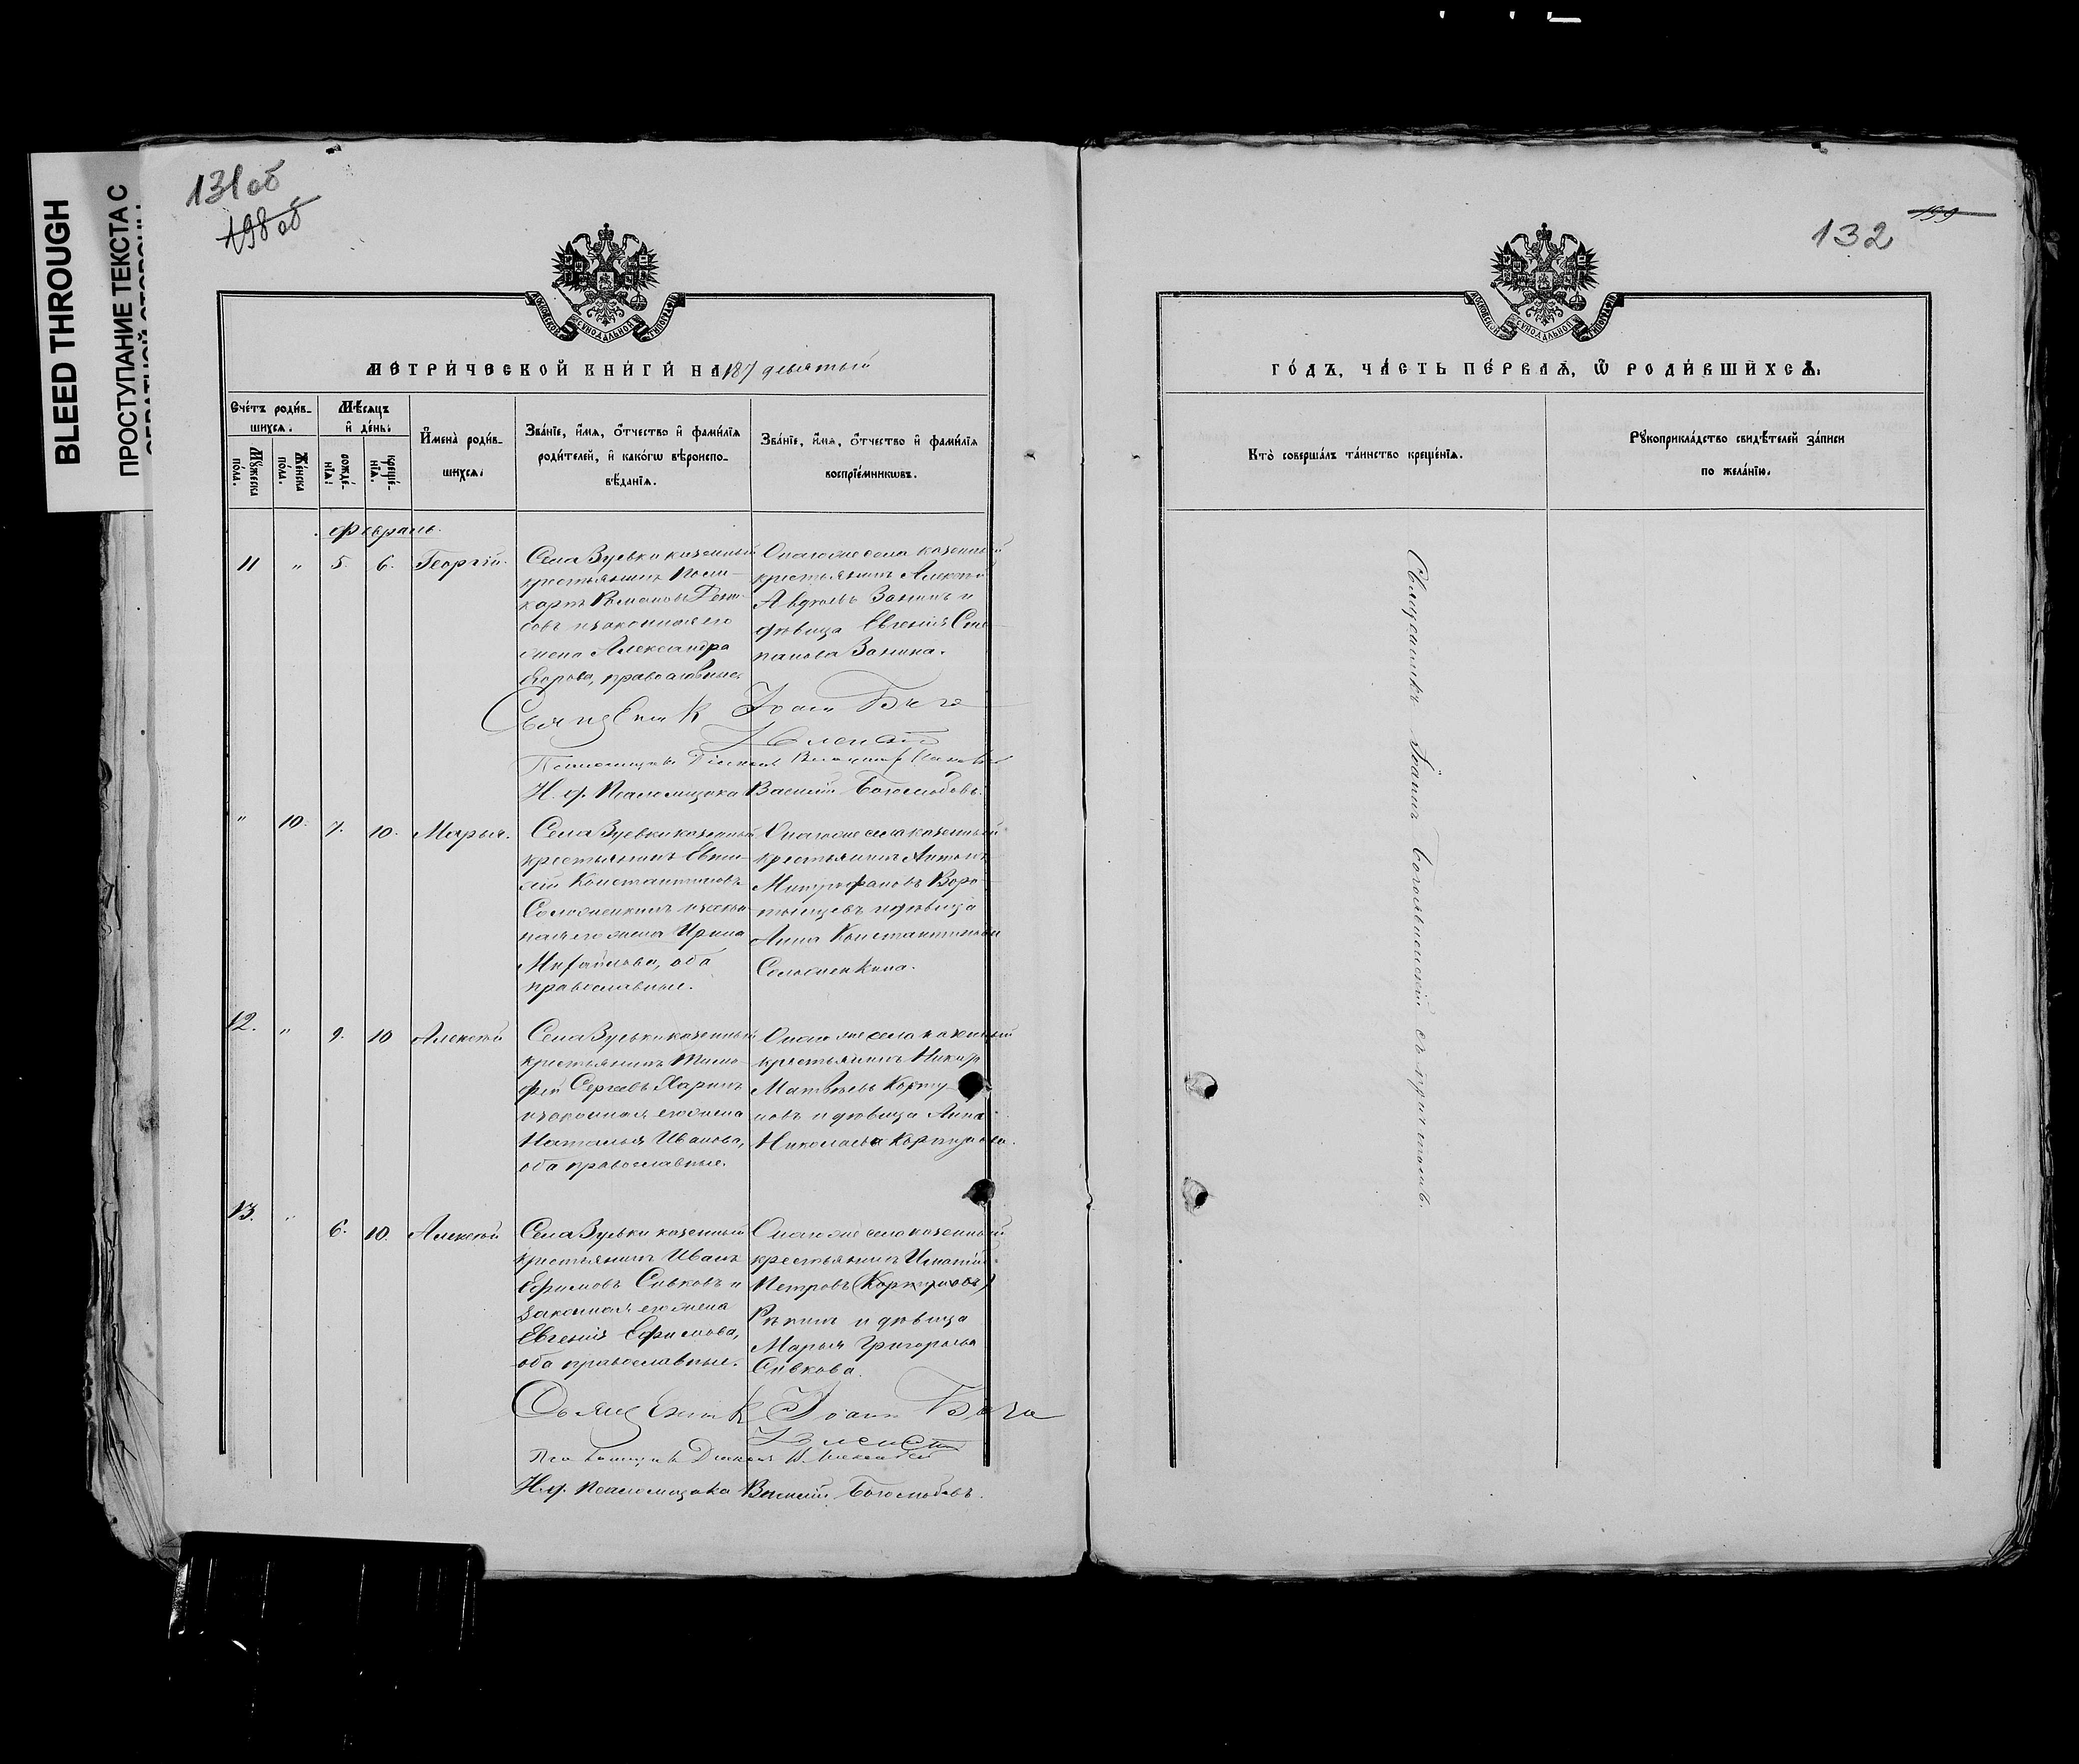 BLEED THROUGH
ПРОСТУПАНИЕ ТЕКСТА С
131об
198об
МОСКОВСКОЙ СѴНОДАЛЬНОЙ ТИПОГРАФІИ
МЕТРИ́ЧЕСКОЙ КНИ́ГИ НА 187 девятый
Сче́тъ роди́в-
шихсѧ.
Мѣ́сѧцъ
и҆ де́нь.
Мꙋ́жеска
по́ла.
Же́нска
по́ла.
рожде́-
нїѧ.
креще́-
нїѧ.
И҆мена̀ роди́в-
шихсѧ.
Зва́нїе, и҆́мѧ, ѻ҆́тчество и҆ фами́лїѧ
роди́телей, и҆ како́гѡ вѣроиспо-
вѣ́данїѧ.
Зва́нїе, и҆́мѧ, ѻ҆́тчество и҆ фами́лїѧ
воспрїе́мникѡвъ.
Февраль.
11 " 5. 6. Георгій.
Села Зуевки казенный
крестьянинъ Поли-
карпъ Романовъ
и законная его
жена Александра
Егорова, православные
Онаго же села казенный
крестьянинъ Алексей
Авдѣевъ Зонинъ и
дѣвица Евгенія Сте-
панова Зонина.
Священник Іоанн Бого
явленскій
Н. д. Псаломщика Василій Боголюбовъ.
" 10. 7. 10. Марья.
Села Зуевки казенный
крестьянинъ Евти-
хій Константиновъ
Соложенкинъ и закон-
ная его жена Ирина
Михайлова, оба
православные.
Онаго же села казенный
крестьянинъ Антонъ
Митрофановъ Воро-
тынцевъ и дѣвица
Анна Константинова
Соложенкина.
12. " 9. 10 Алексѣй
Села Зуевки казенный
крестьянинъ Тимо-
фей Сергеевъ Харинъ
и законная его жена
Наталья Иванова,
оба православные.
Онаго же села казенный
крестьянинъ
Матвѣевъ Корту-
новъ и дѣвица Анна
Николаева Кортунова.
13. " 6. 10. Алексѣй
Села Зуевки казенный
крестьянинъ Иванъ
Ефимовъ Сивковъ и
законная его жена
Евгенія Ефимова,
оба православные.
Онаго же села казенный
крестьянинъ Игнатій
Петровъ (Кортуновъ)
Рѣкинъ и дѣвица
Марья Григорьева
Сивкова.
Священник Іоанн Бого
явленскій
Н. д. Псаломщика Василій Боголюбовъ.
199
132
МОСКОВСКОЙ СѴНОДАЛЬНОЙ ТИПОГРАФІИ
ГО́ДЪ, ЧА́СТЬ ПЕ́РВАѦ, Ѽ РОДИ́ВШИХСѦ.
Кто̀ соверша́лъ та́инство креще́нїѧ.
Рꙋкоприкла́дство свидѣ́телей за́писи
по жела́нїю.
Священникъ Іоаннъ Богоявленскій съ причтомъ.